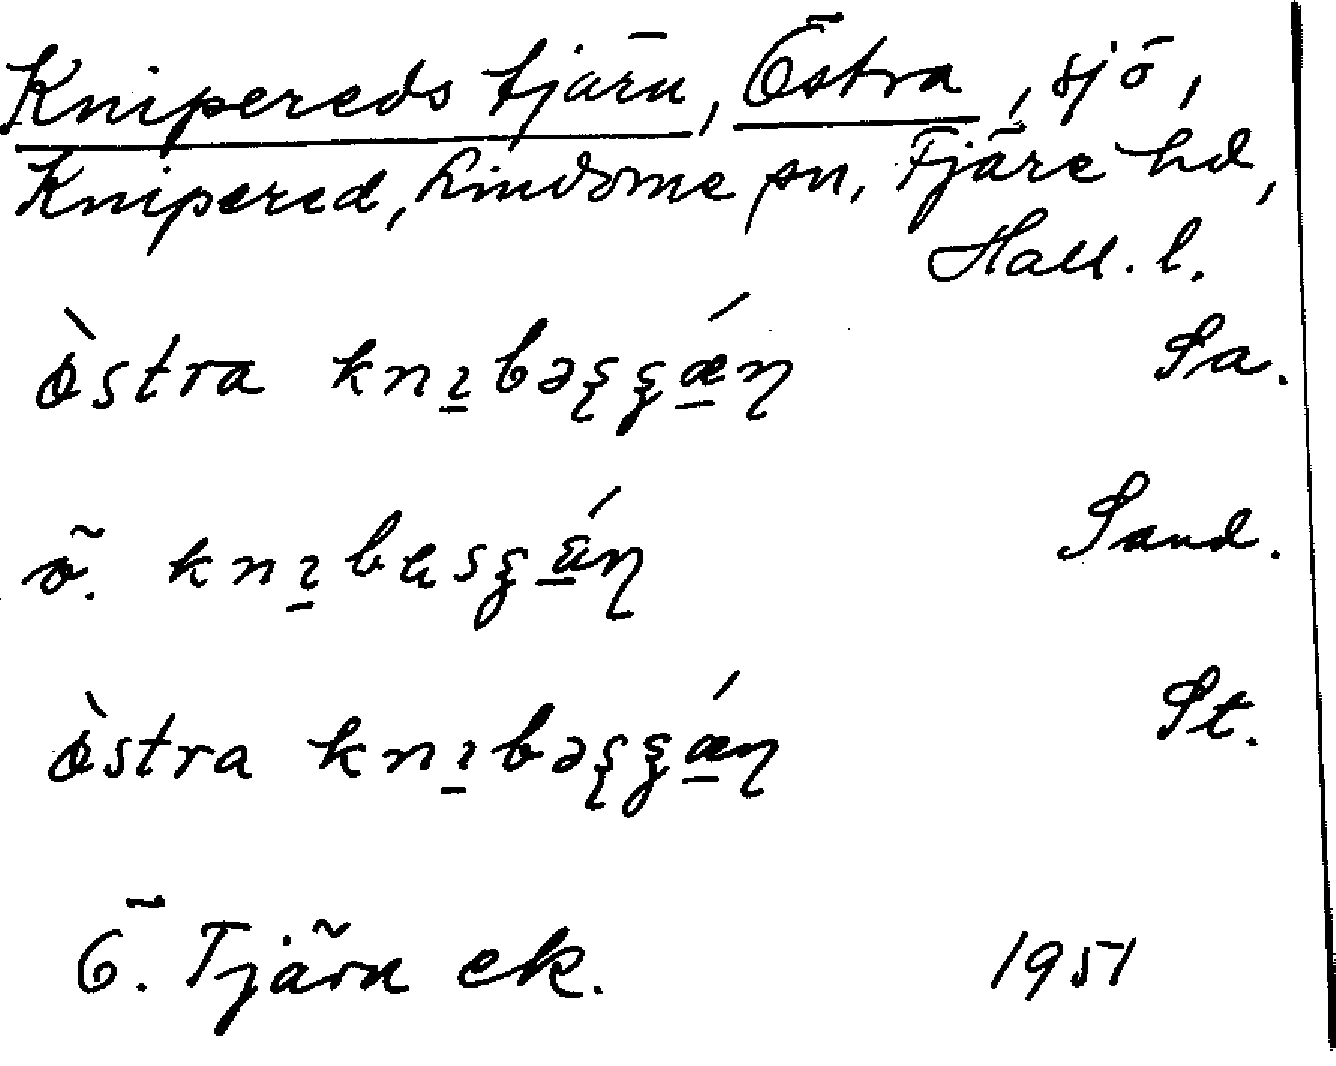 Knipereds tjärn, Östra, sjö,
Knipered, Lindome sn, Fjäre hd,
Hall. l.
östra knɪbəʂʂǽɳ Sa.
ö. knɪbɐsʂǽɳ Sand.
östra knɪbəʂʂǽɳ St.
Ö. Tjärn ek. 1951